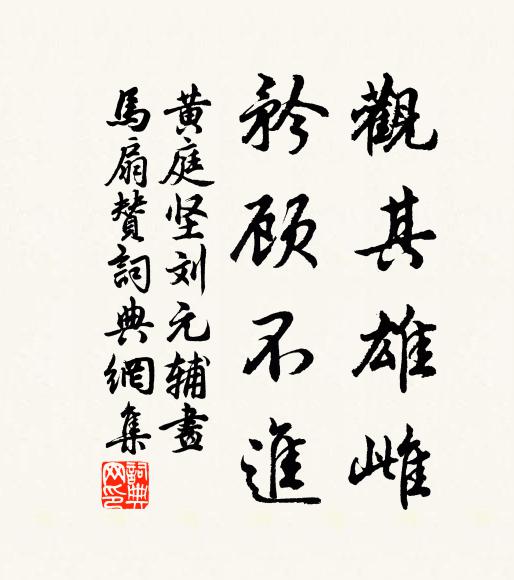 觀其雄雌
矜顾不進
黄庭坚刘元辅畫
馬扇贊詞典網集
詞典網印